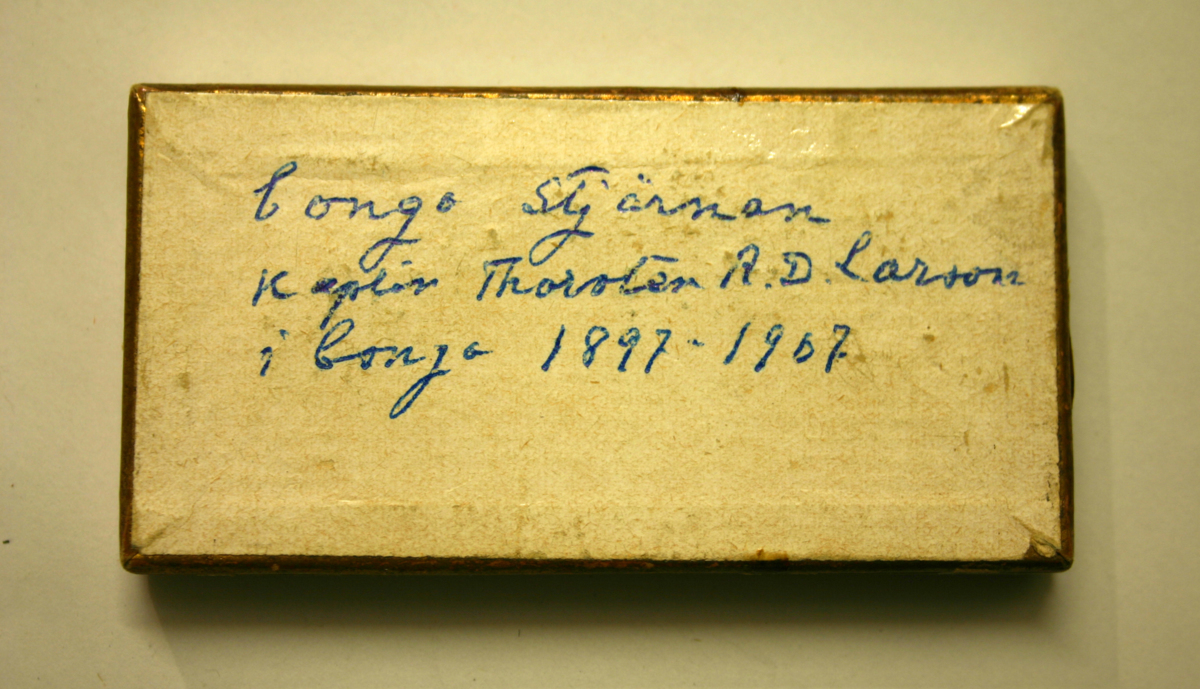 Congo Stjärnan
Kaptin Thorsten A.D. Larson
i Congo 1897-1907